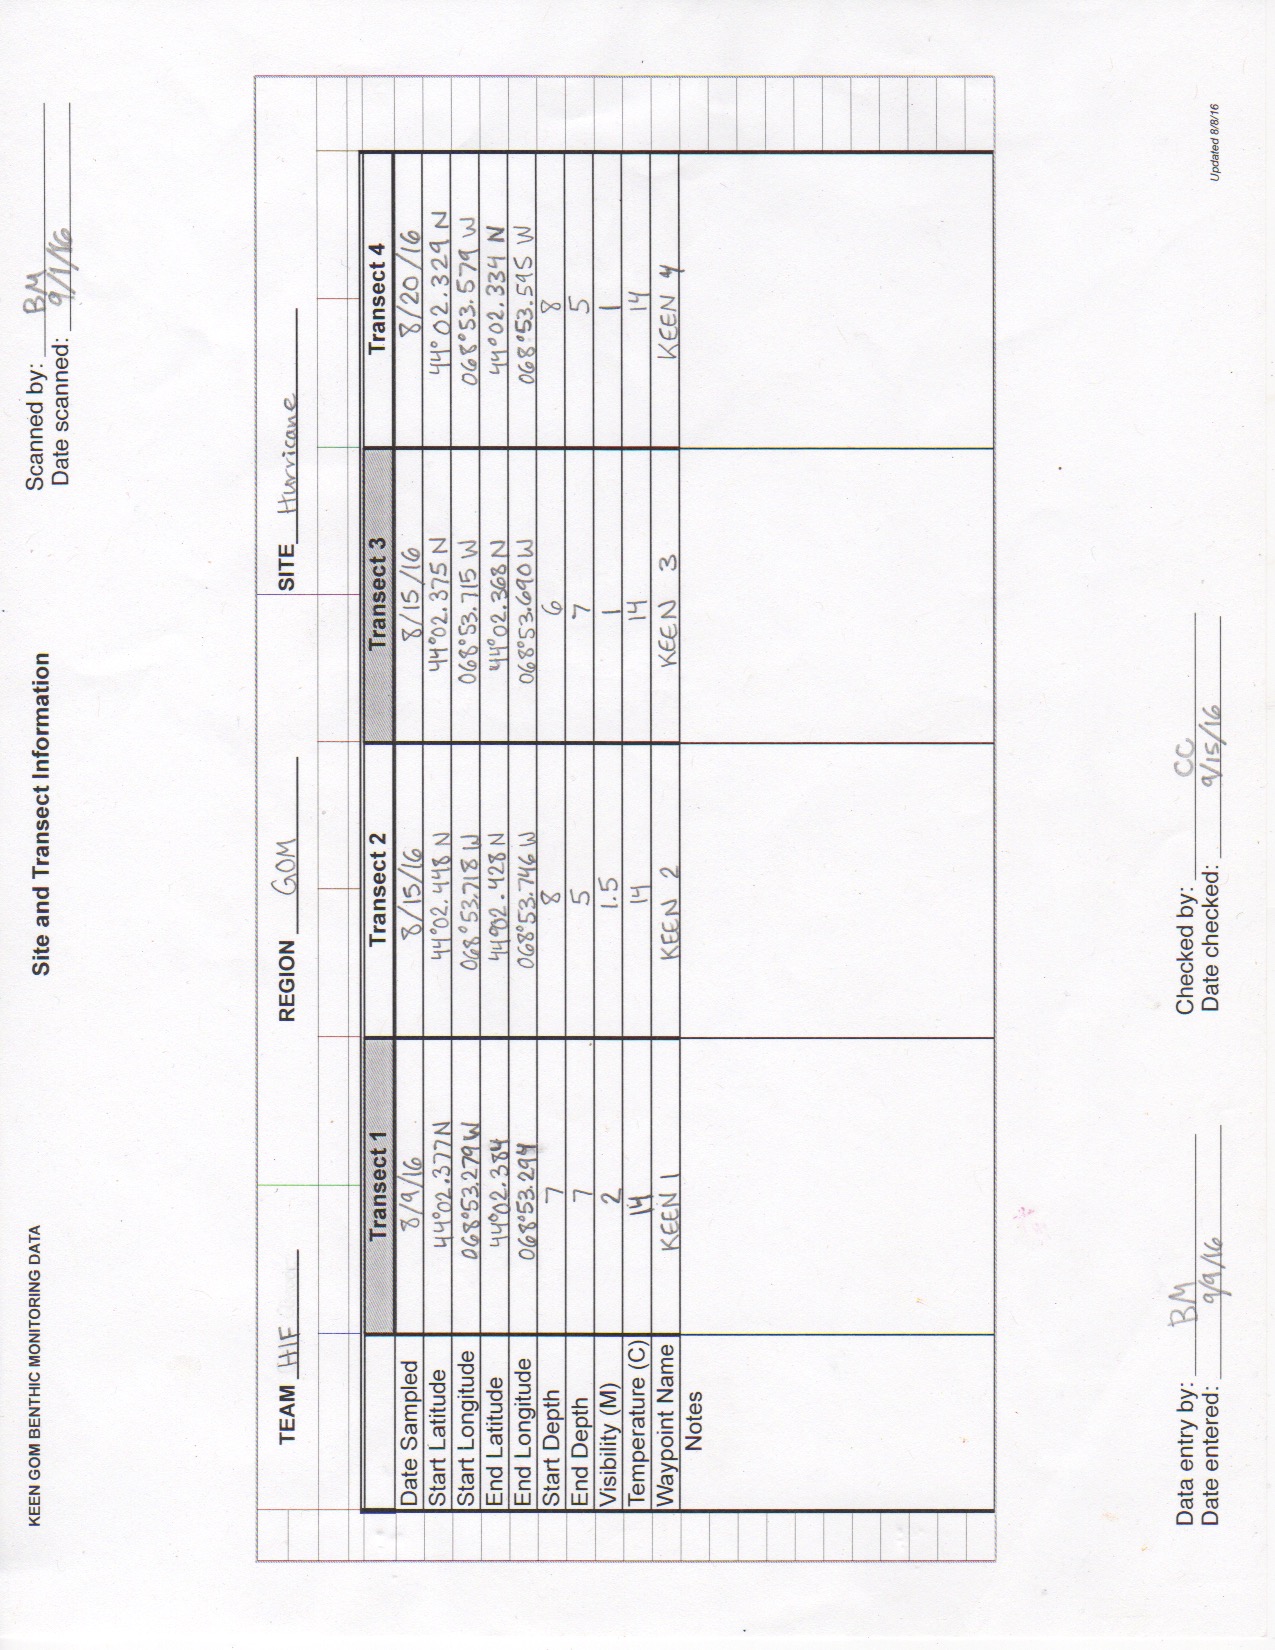 KEEN GOM BENTHIC MONITORING DATA
Site and Transect Information
Scanned by: BM
Date scanned: 9/1/16
TEAM HIF REGION GOM SITE Hurricane
Transect 1 Transect 2 Transect 3 Transect 4
Date Sampled 8/9/16 8/15/16 8/15/16 8/20/16
Start Latitude 44°02.377N 44°02.448 N 44°02.375 N 44°02.329 N
Start Longitude 068°53.279W 068°53.718 W 068°53.715 W 068°53.579 W
End Latitude 44°02.384 44°02.428 N 44°02.368 N 44°02.334 N
End Longitude 068°53.294 068°53.746 W 068°53.690 W 068°53.595 W
Start Depth 7 8 6 8
End Depth 7 5 7 5
Visibility (M) 2 1.5 1 1
Temperature (C) 14 14 14 14
Waypoint Name KEEN 1 KEEN 2 KEEN 3 KEEN 4
Notes
Data entry by: BM
Date entered: 9/9/16
Checked by: CC
Date checked: 9/15/16
Updated 8/8/16